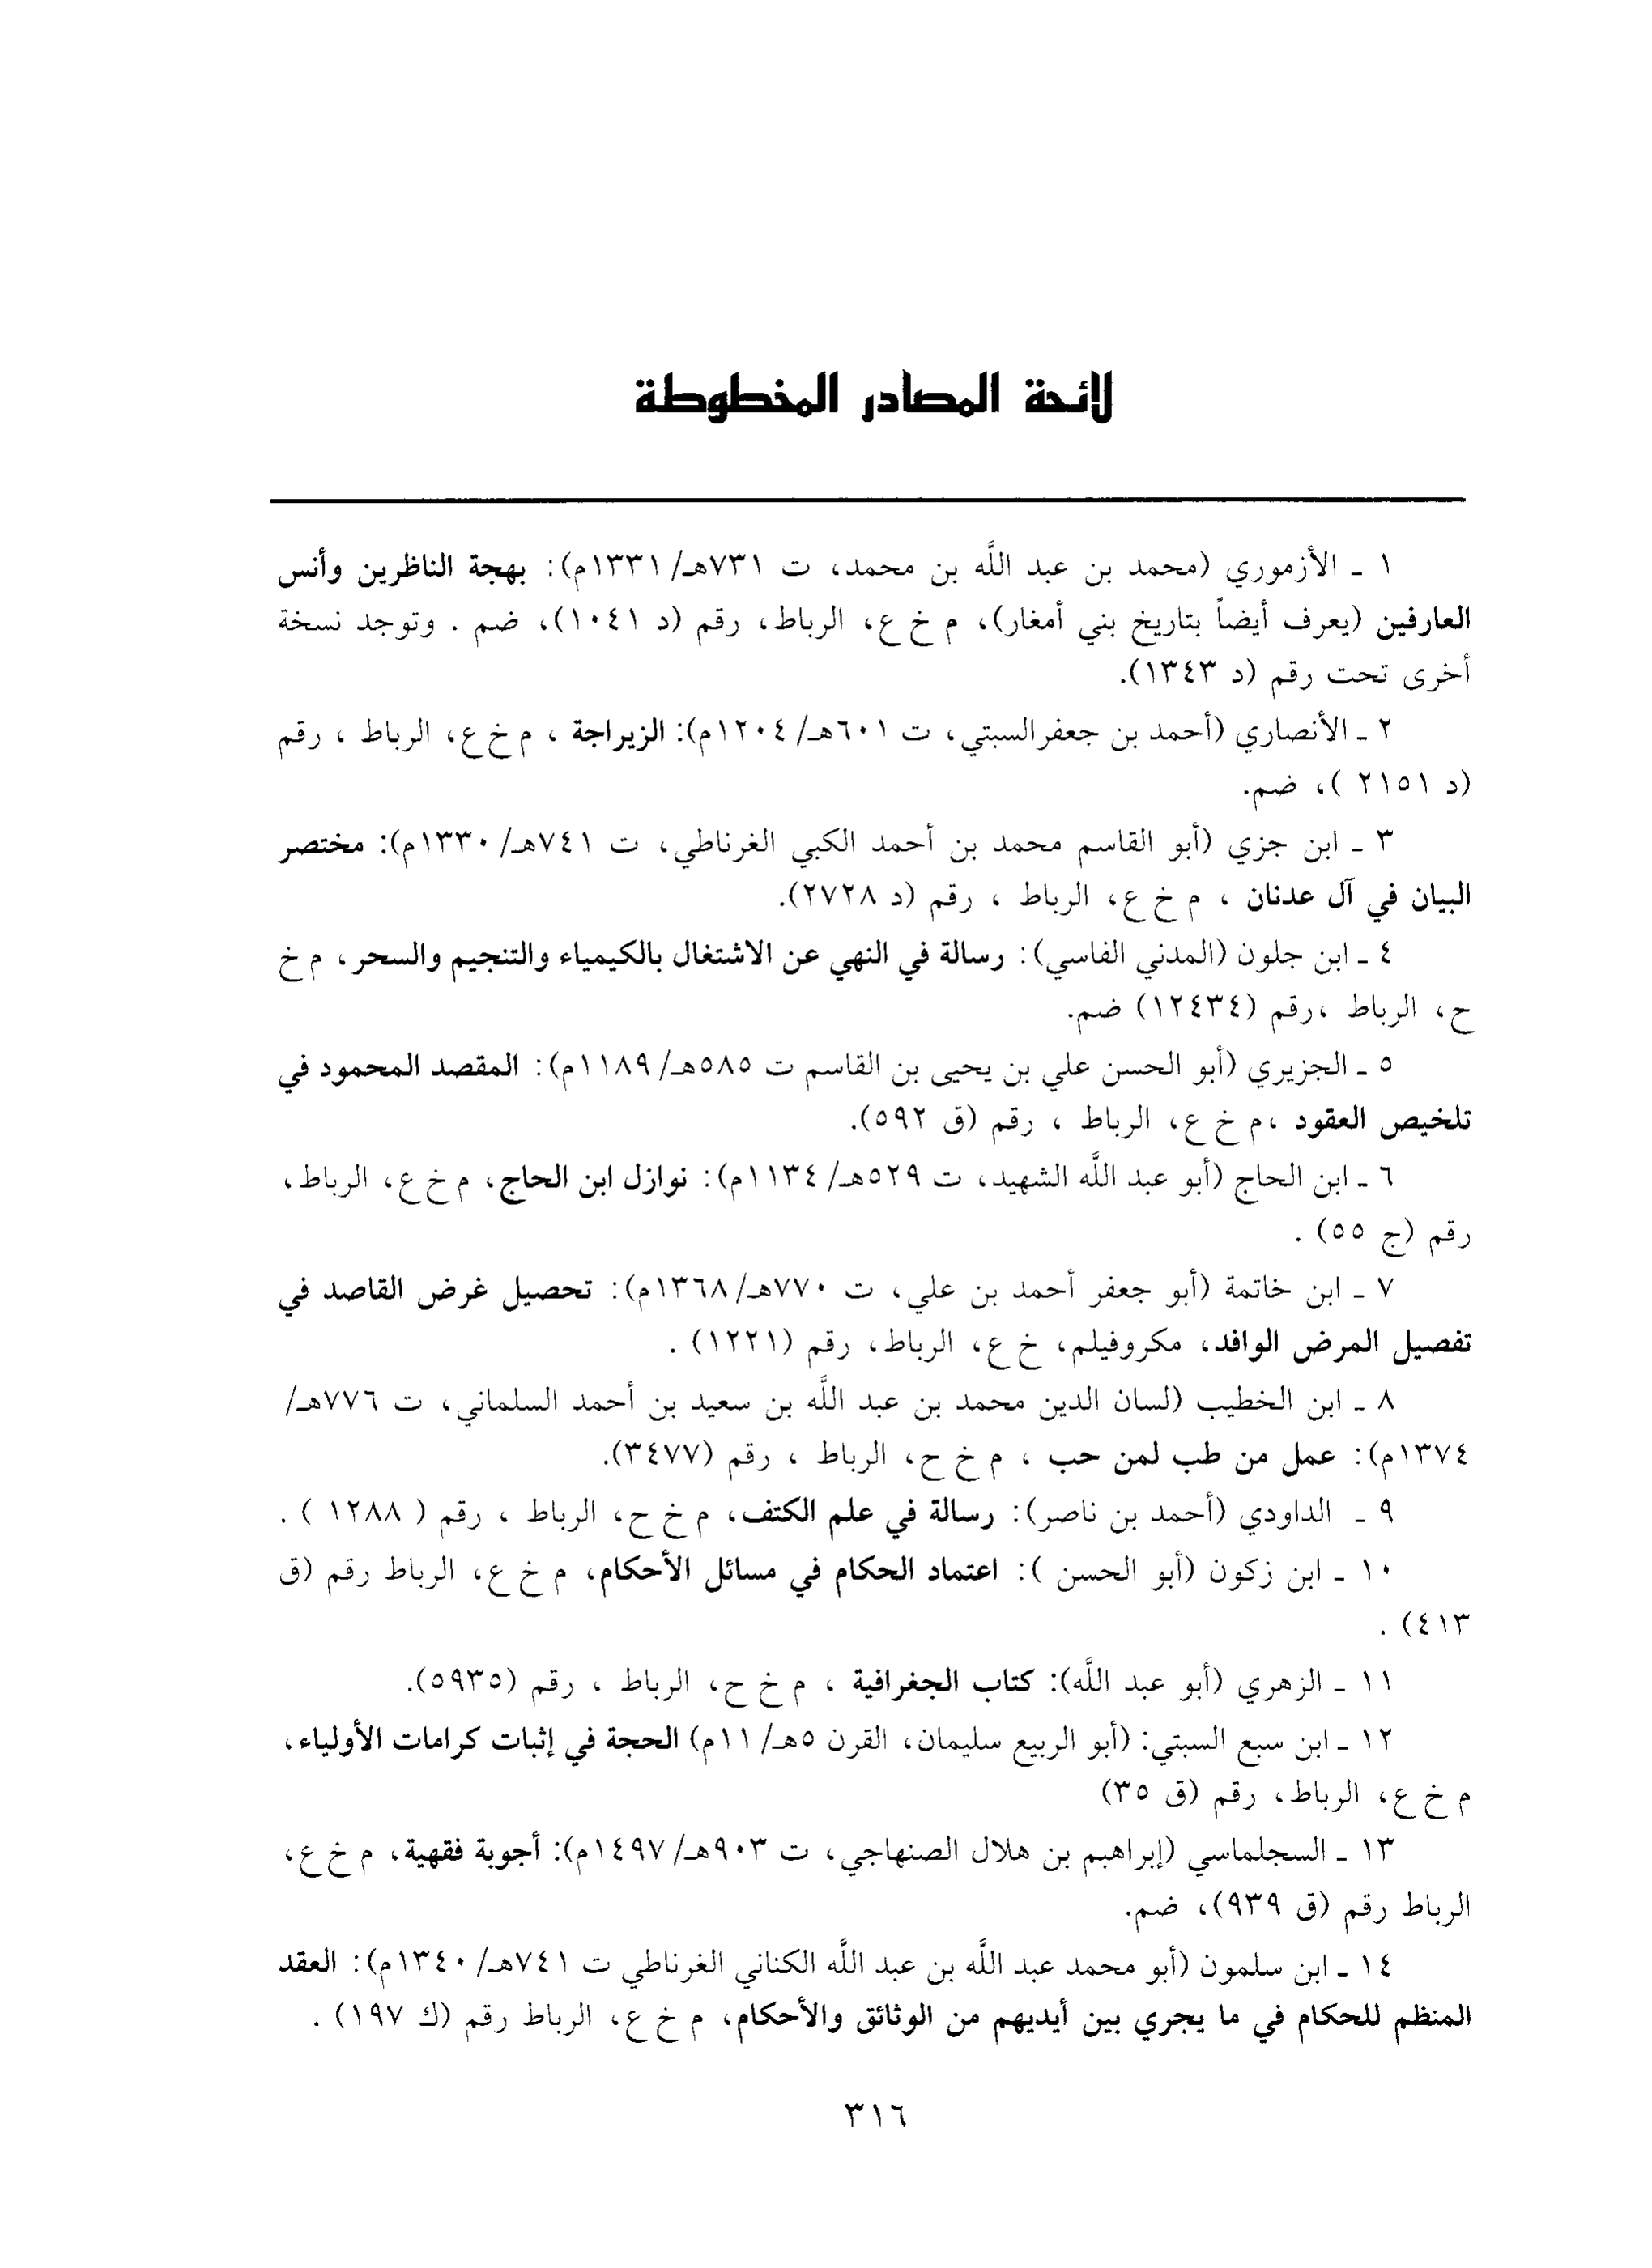 لائحة المصادر المخطوطة
١ ـ الأزموري (محمد بن عبد اللَّه بن محمد، ت ٧٣١هـ/ ١٣٣١م): بهجة الناظرين وأنس
العارفين (يعرف أيضاً بتاريخ بني أمغار)، م خ ع، الرباط، رقم (د ١٠٤١)، ضم . وتوجد نسخة
أخرى تحت رقم (د ١٣٤٣).
٢ ـ الأنصاري (أحمد بن جعفرالسبتي، ت ٦٠١هـ/ ١٢٠٤م): الزيراجة ، م خ ع، الرباط ، رقم
(د ٢١٥١ )، ضم.
٣ ـ ابن جزي (أبو القاسم محمد بن أحمد الكبي الغرناطي، ت ٧٤١هـ/ ١٣٣٠م): مختصر
البيان في آل عدنان ، م خ ع، الرباط ، رقم (د ٢٧٢٨).
٤ ـ ابن جلون (المدني الفاسي): رسالة في النهي عن الاشتغال بالكيمياء والتنجيم والسحر، م خ
ح، الرباط ،رقم (١٢٤٣٤) ضم.
٥ ـ الجزيري (أبو الحسن علي بن يحيى بن القاسم ت ٥٨٥هـ/ ١١٨٩م): المقصد المحمود في
تلخيص العقود ،م خ ع، الرباط ، رقم (ق ٥٩٢).
٦ ـ ابن الحاج (أبو عبد اللَّه الشهيد، ت ٥٢٩هـ/ ١١٣٤م): نوازل ابن الحاج، م خ ع، الرباط،
رقم (ج ٥٥) .
٧ ـ ابن خاتمة (أبو جعفر أحمد بن علي، ت ٧٧٠هـ/ ١٣٦٨م): تحصيل غرض القاصد في
تفصيل المرض الوافد، مكروفيلم، خ ع، الرباط، رقم (١٢٢١) .
٨ ـ ابن الخطيب (لسان الدين محمد بن عبد اللَّه بن سعيد بن أحمد السلماني، ت ٧٧٦هـ/
١٣٧٤م): عمل من طب لمن حب ، م خ ح، الرباط ، رقم (٣٤٧٧).
٩ ـ الداودي (أحمد بن ناصر): رسالة في علم الكتف، م خ ح، الرباط ، رقم ( ١٢٨٨ ) .
١٠ ـ ابن زكون (أبو الحسن ): اعتماد الحكام في مسائل الأحكام، م خ ع، الرباط رقم (ق
٤١٣) .
١١ ـ الزهري (أبو عبد اللَّه): كتاب الجغرافية ، م خ ح، الرباط ، رقم (٥٩٣٥).
١٢ ـ ابن سبع السبتي: (أبو الربيع سليمان، القرن ٥هـ/ ١١م) الحجة في إثبات كرامات الأولياء،
م خ ع، الرباط، رقم (ق ٣٥)
١٣ ـ السجلماسي (إبراهيم بن هلال الصنهاجي، ت ٩٠٣هـ/ ١٤٩٧م): أجوبة فقهية، م خ ع،
الرباط رقم (ق ٩٣٩)، ضم.
١٤ ـ ابن سلمون (أبو محمد عبد اللَّه بن عبد اللَّه الكناني الغرناطي ت ٧٤١هـ/ ١٣٤٠م): العقد
المنظم للحكام في ما يجري بين أيديهم من الوثائق والأحكام، م خ ع، الرباط رقم (ك ١٩٧) .
٣١٦